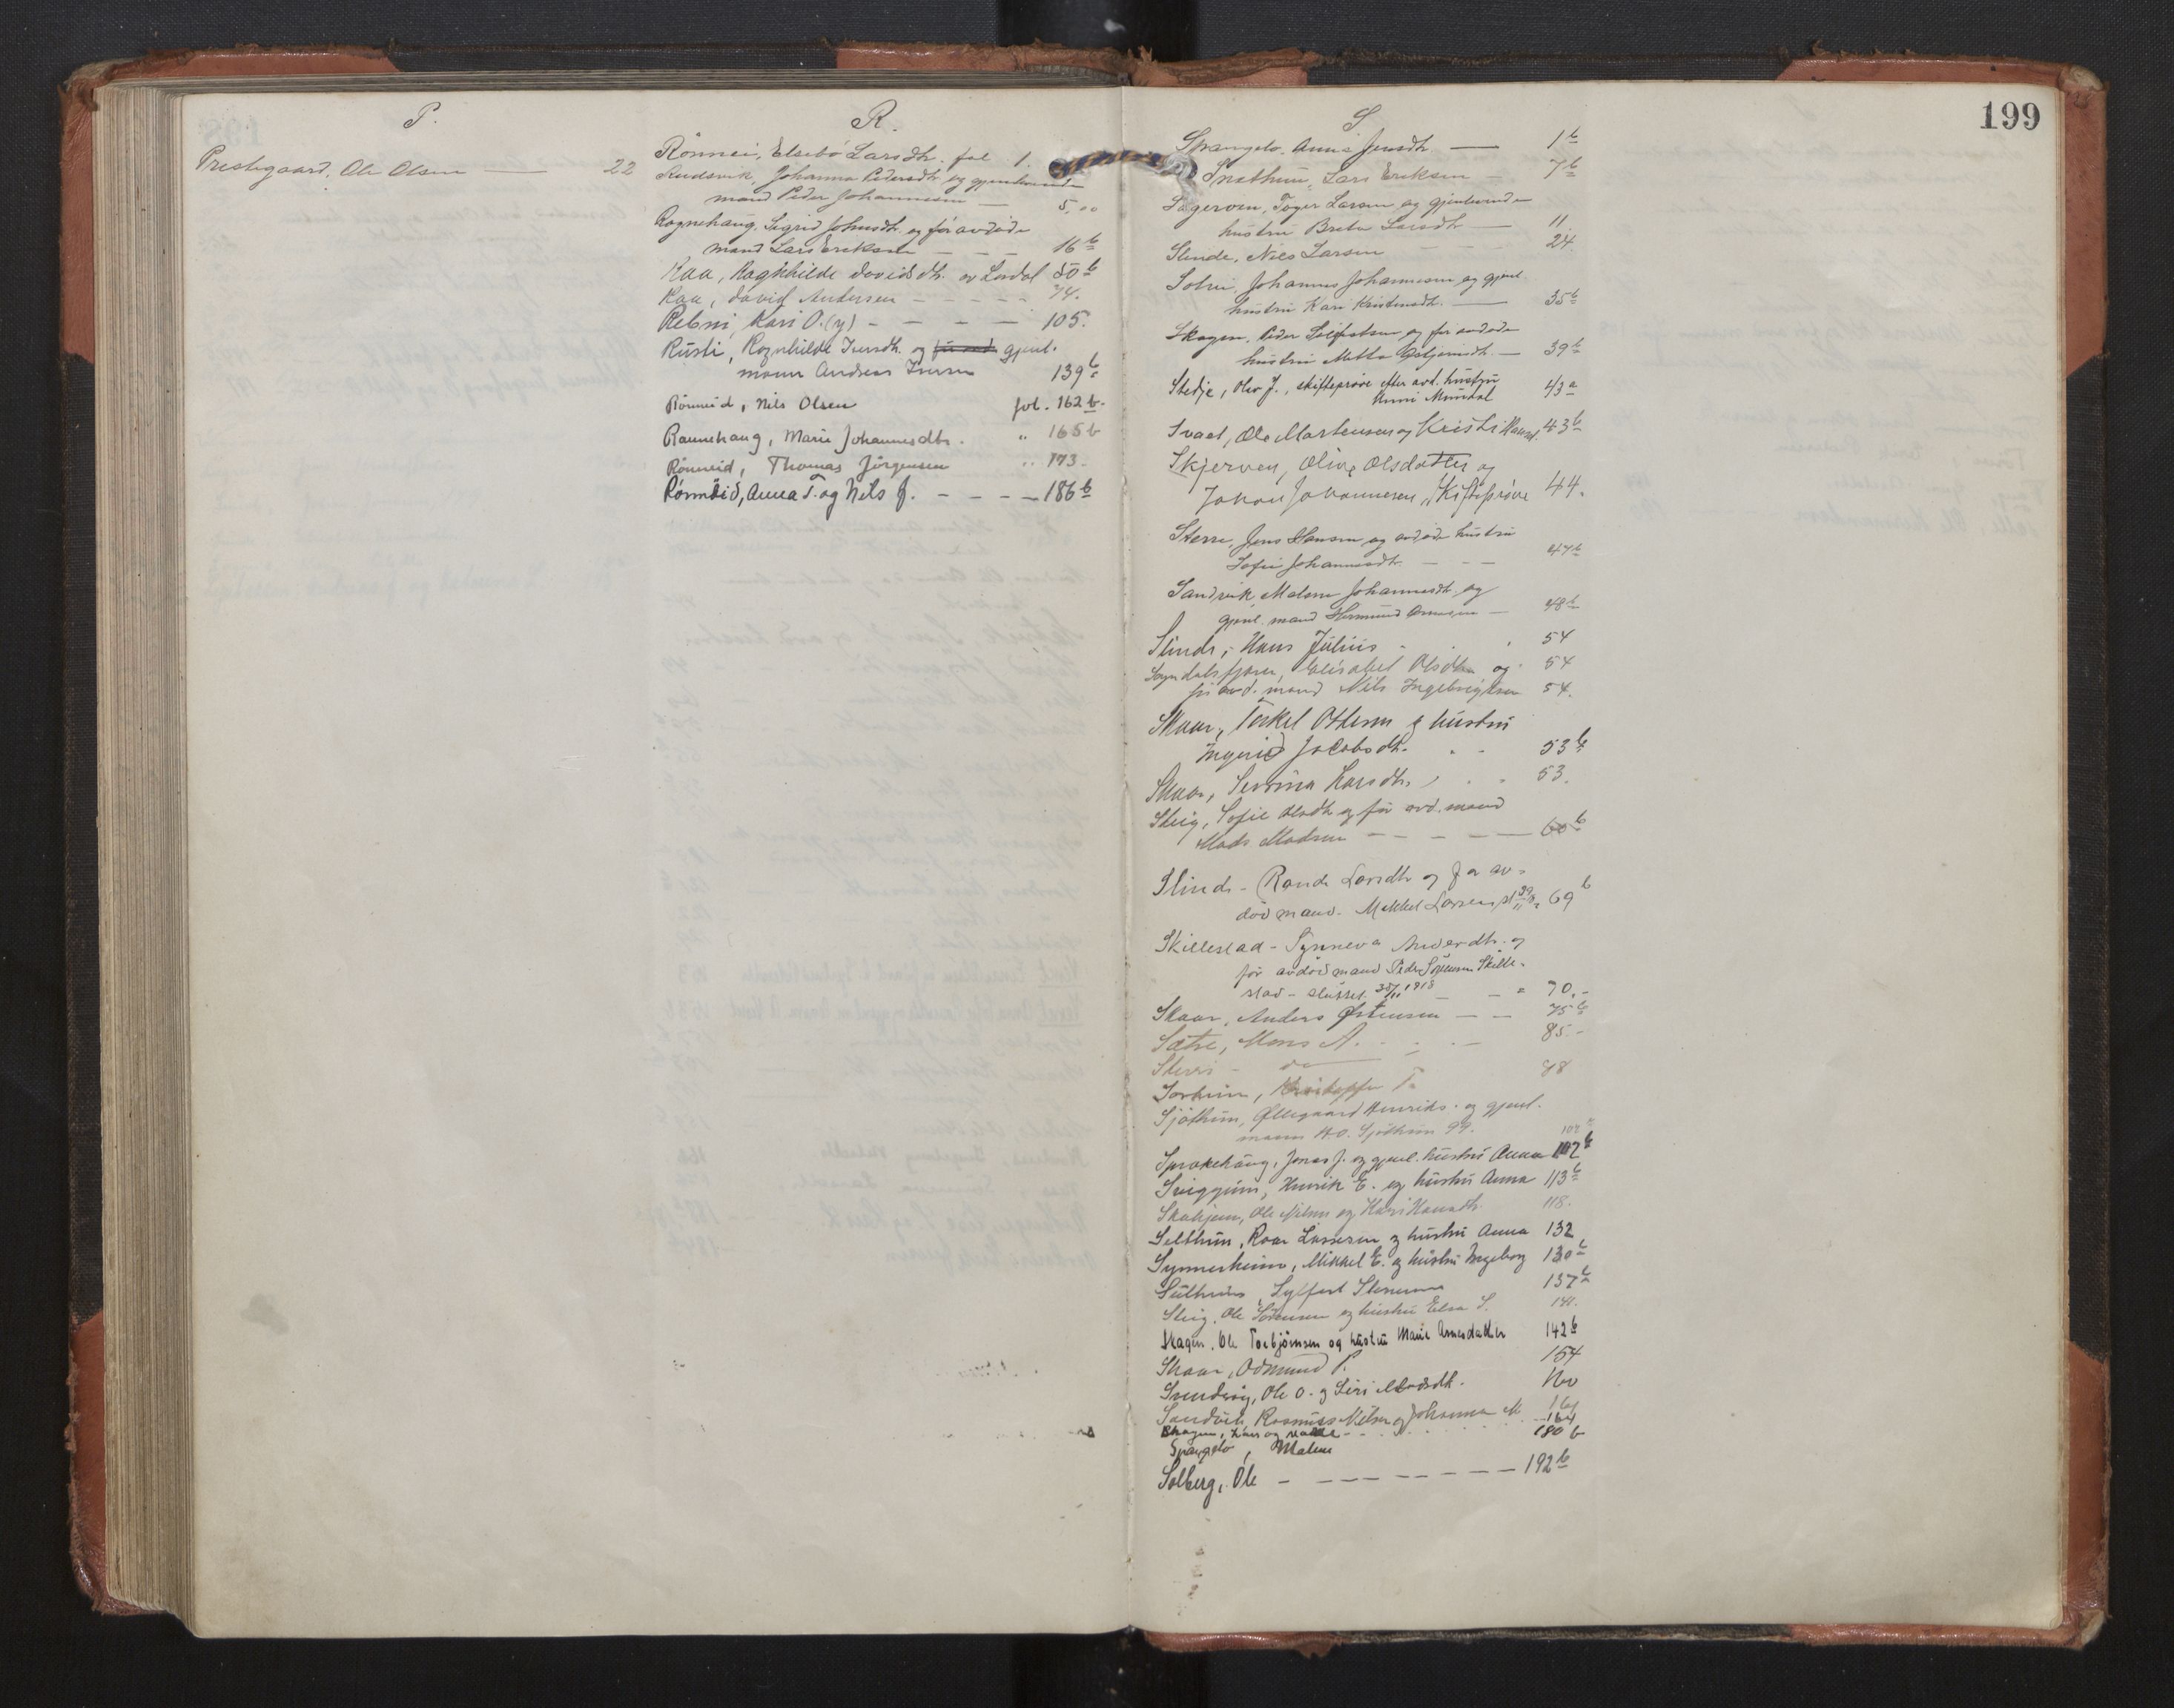 P.
Prestegaard, Ole Olsen — 22
R.
Rönnei, Elsebö Larsdtr. fol 1.
Rudsvik, Johanna Pedersdtr. og gjenlevende
mand Peder Johannessen — 5,00
Rognehaug, Sigrid Johnsdtr. og før avdöde
mand Lars Eriksen — — 16 b
Raa, Raghhilde Davidsdtr. av Lærdal 50 b
Raa, David Andersen — — — — 74.
Rebni, Kari O. (y) — — — — 105.
Rusti, Ragnhilde Iversdtr. og gjenl.
mann Andreas Iversen 139 b
Rönneid, Nils Olsen fol. 162 b.
Raunehaug, Marie Johannesdtr. " 165 b
Rönneid, Thomas Jörgensen " 173.
Rönneid, Anna T. og Nils J. — — — — 186 b
199
S
Sprangelo. Anna Jensdtr. — 1 b
Snethun, Lars Eriksen — 7 b
Sageroen, Torger Larsen og gjenlevende
hustru Brita Larsdtr — 11.
Slinde, Niels Larsen — — — 24.
Johannes Johannesen og gjenl.
hustru Kari Kristensdtr. — 35 b
Skagen, Peder og før avdöde
hustru Mette — 39 b
Stedje, Olav J., skifteprøve efter avd. hustru
Anni Mundal 43 a
Svaet, Ole Martensen og Kristi 43 b
Skjerven, Oline Olsdatter og
Johan Johannesen, Skifteprøve 44.
Sterri, Jens Hansen og avdøde hustru
Sofie Johannesdtr. — — — 47 b
Sandvik, Malene Johannesdtr. og
gjenl. mand Hermund Arnesen — 48 b
Slinde, Hans Julius 54
Sogndalsfjøren, Elisabet Olsdtr. og 54
før avd. mand Nils Ingebrigtsen 54.
Skaar, Torkel Ottesen & hustru
Ingerid Jacobsdtr. 53 b
Skaar, Severina Larsdtr. 53.
Steig, Sofie Olsdtr og før avd. mand
Mads Madsen — — — — 60 b
Slinde - Randi Larsdtr og for av-
död mand. Mikkel Larsen 69 b
Skillestad - Synneva Andersdtr. og
för avdöd mand Peder Sjursen Skille-
stad - sluttet 30/11 1918 — — " 70.-
Skaar, Anders Østensen — — 75 b
Sætre, Mons A. 85.-
Sterri - do 98
Sorheim, Kristoffer T.
Sjöthun, Øllegaard Henriks. og gjenl.
mann H.O. Sjöthun 99. 102
Sprakehaug, Jonas J. og gjenl. hustru Anna 112 b
Sviggum, Henrik E. og hustru Anna 113 b
Skahjem, Ole Nilsen og Kari Hansdtr. 118.
Selthun, Roar Lassesen og hustru Anna 132
Synnerheim, Mikkel E. og hustru Ingeborg 130 b
Selthun, Sylfest 137 b
Steig, Ole Sørensen og hustru Elsa S. 141.
Skagen, Ole Torbjörnsen og hustru Marie Arnesdatter 142 b
Skaar, Odmund P. 154
Svendsøy, Ole O. og Siri Madsdtr. 160
Sandvik, Rasmus Nilsen og Johanna M. 161
Skagen, Lars og 164
Spangelo, Malene 180 b
Solberg, Ole — — — — — — — 192 b